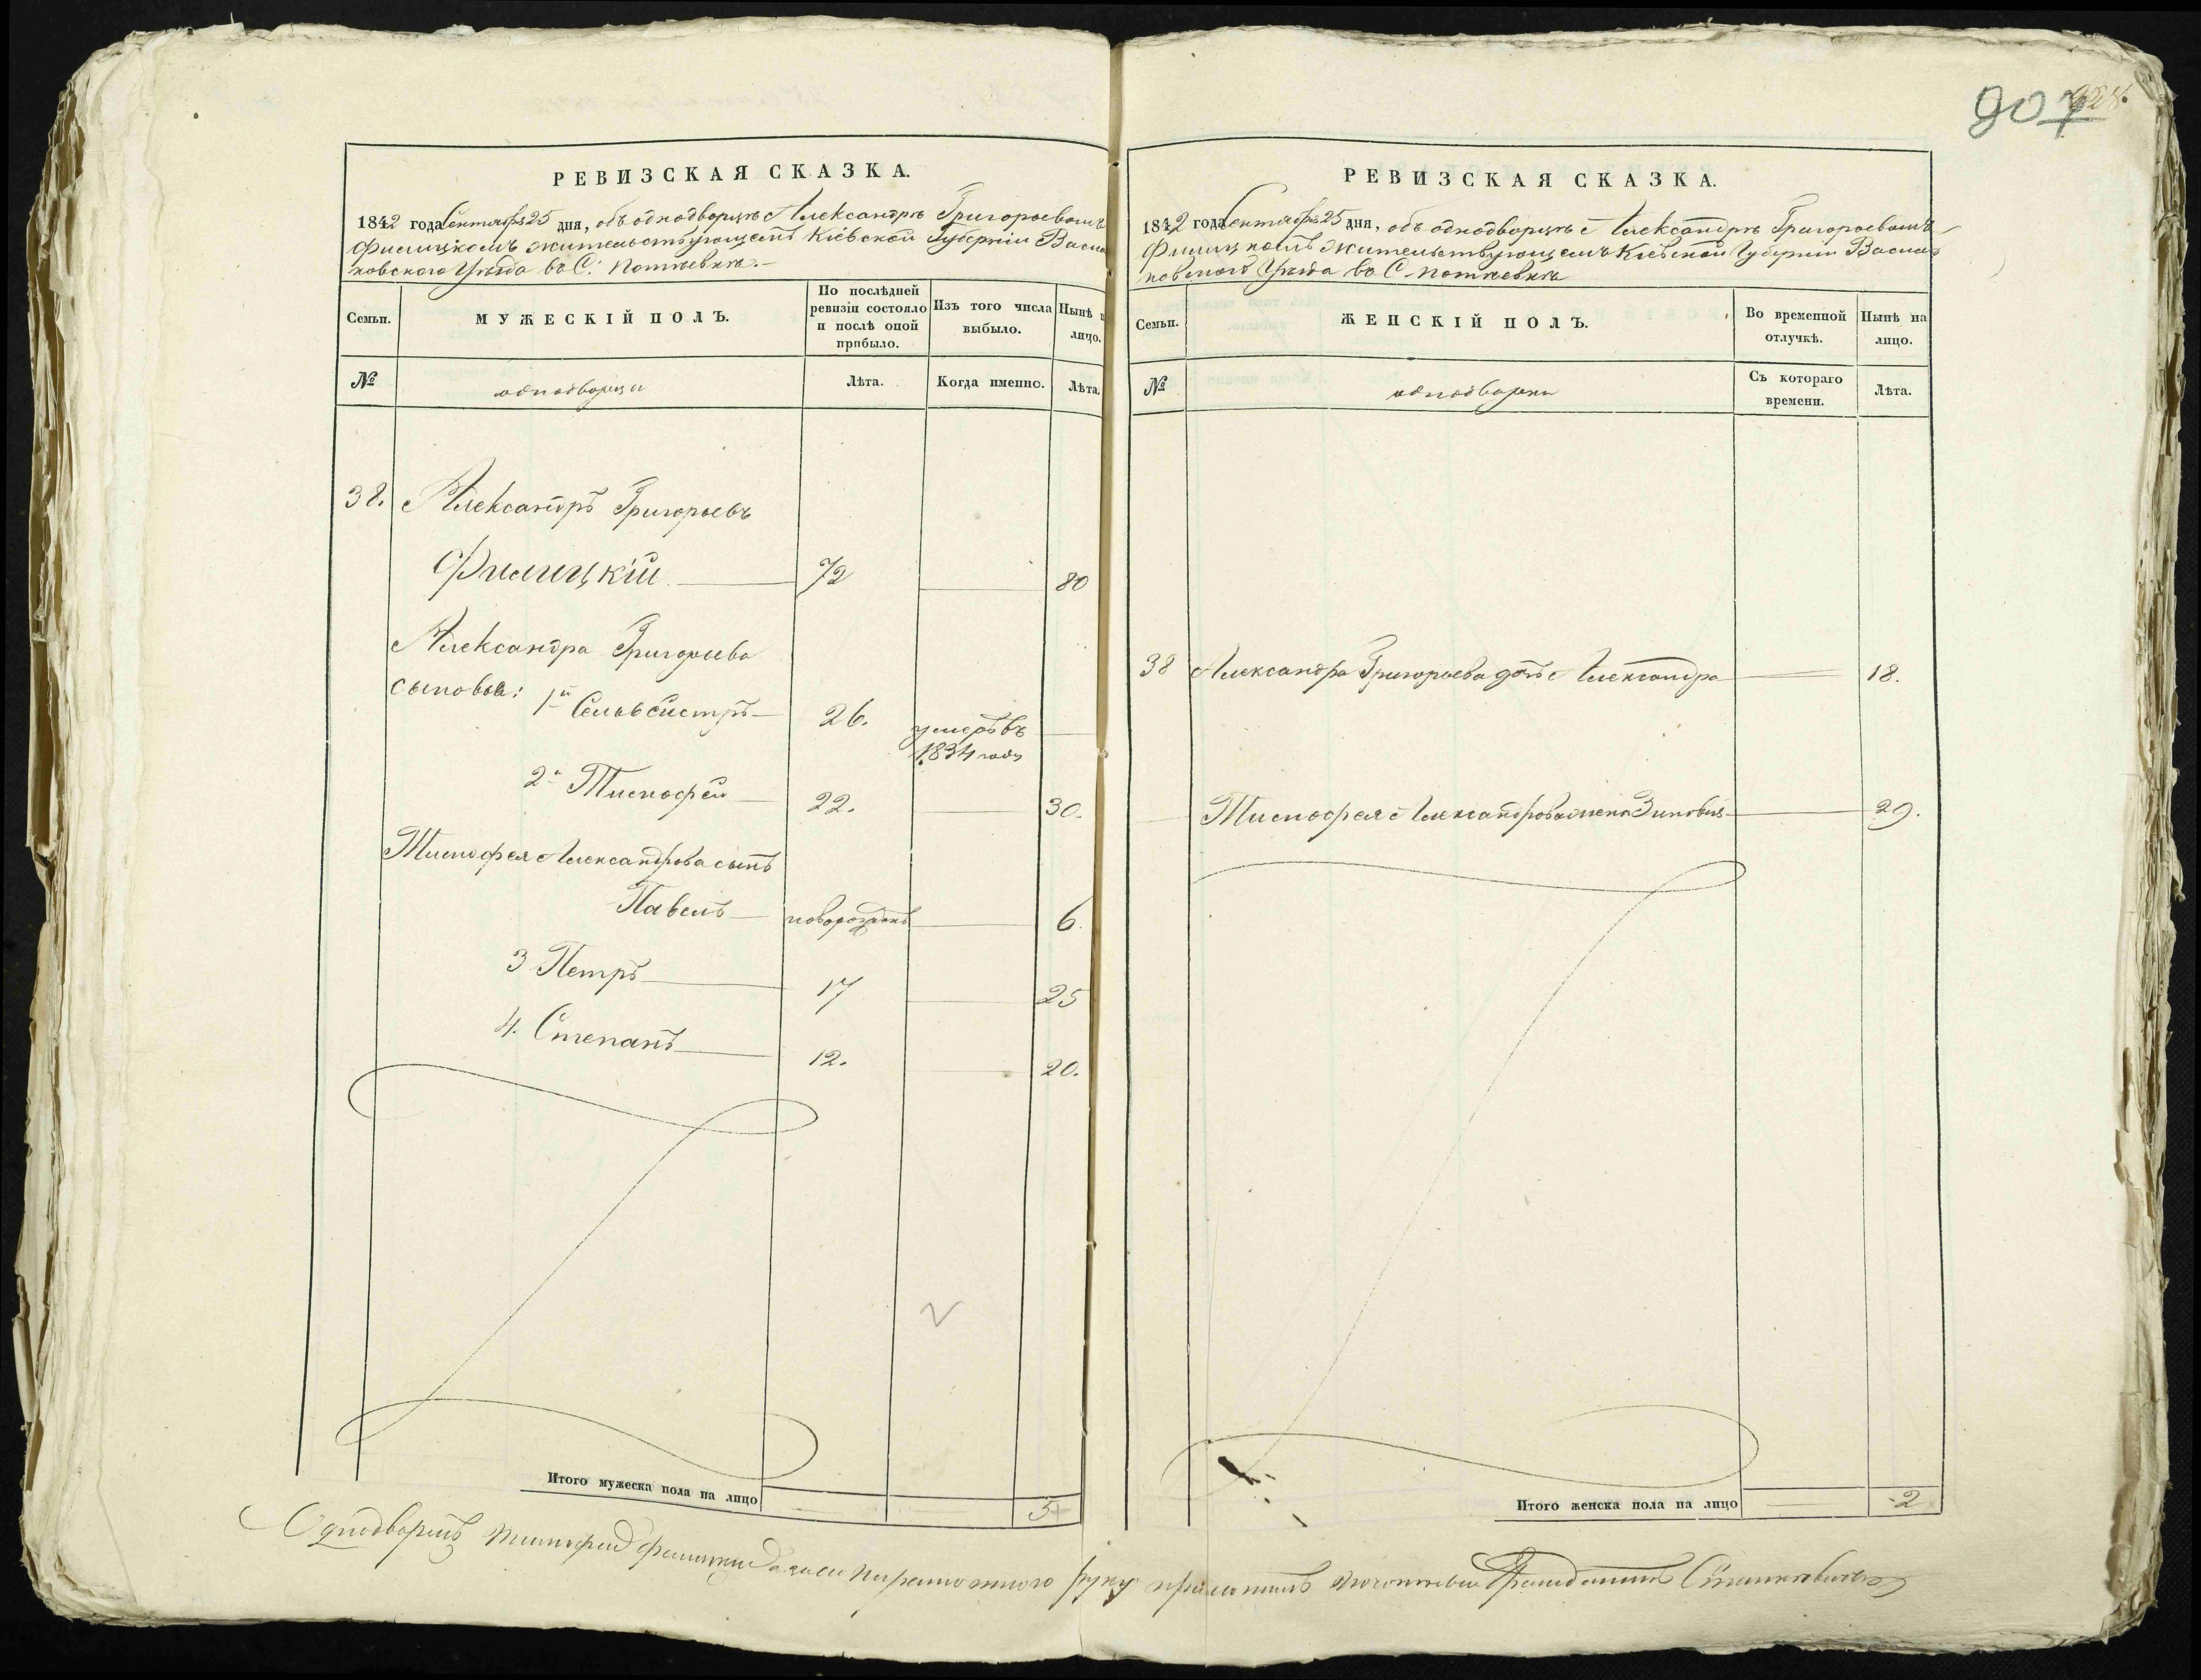 907
РЕВИЗСКАЯ СКАЗКА.
1842 года Сентября 25 дня, объ однодворцѣ Александрѣ Григорьевомъ
Филицкомъ жительствующемъ Кіевской Губерніи Васил
ковского Уѣзда въ С.
Семьи.
МУЖЕСКІЙ ПОЛЪ.
По послѣдней ревизіи состояло и послѣ оной прибыло.
Изъ того числа выбыло.
Нынѣ на лицо.
№
однодворцы
Лѣта.
Когда именно.
Лѣта.
38. Александръ Григорьевъ
Филицкій 72 80
Александра Григорьева
сыновья: 1й Сельвестръ 26. умеръ въ
1834 году
2й Тимофей 22. 30.
Тимофея Александрова сынъ
Павелъ новорожденъ 6.
3 Петръ 17 25
4. Степанъ 12. 20.
Итого мужеска пола на лицо 5
РЕВИЗСКАЯ СКАЗКА.
1842 года Сентября 25 дня, объ однодворцѣ Александрѣ Григорьевомъ
Филицкомъ жительствующемъ Кіевской Губерніи Василь
ковского Уѣзда въ С.
Семьи.
ЖЕНСКІЙ ПОЛЪ.
Во временной отлучкѣ.
Нынѣ на лицо.
№
однодворки
Съ котораго времени.
Лѣта.
38 Александра Григорьева дочь Александра 18.
Тимофея Александрова жена Зиновия 29.
Итого женска пола на лицо 2
Однодворецъ Тимофей Филицкий а за его неграмотного руку приложилъ